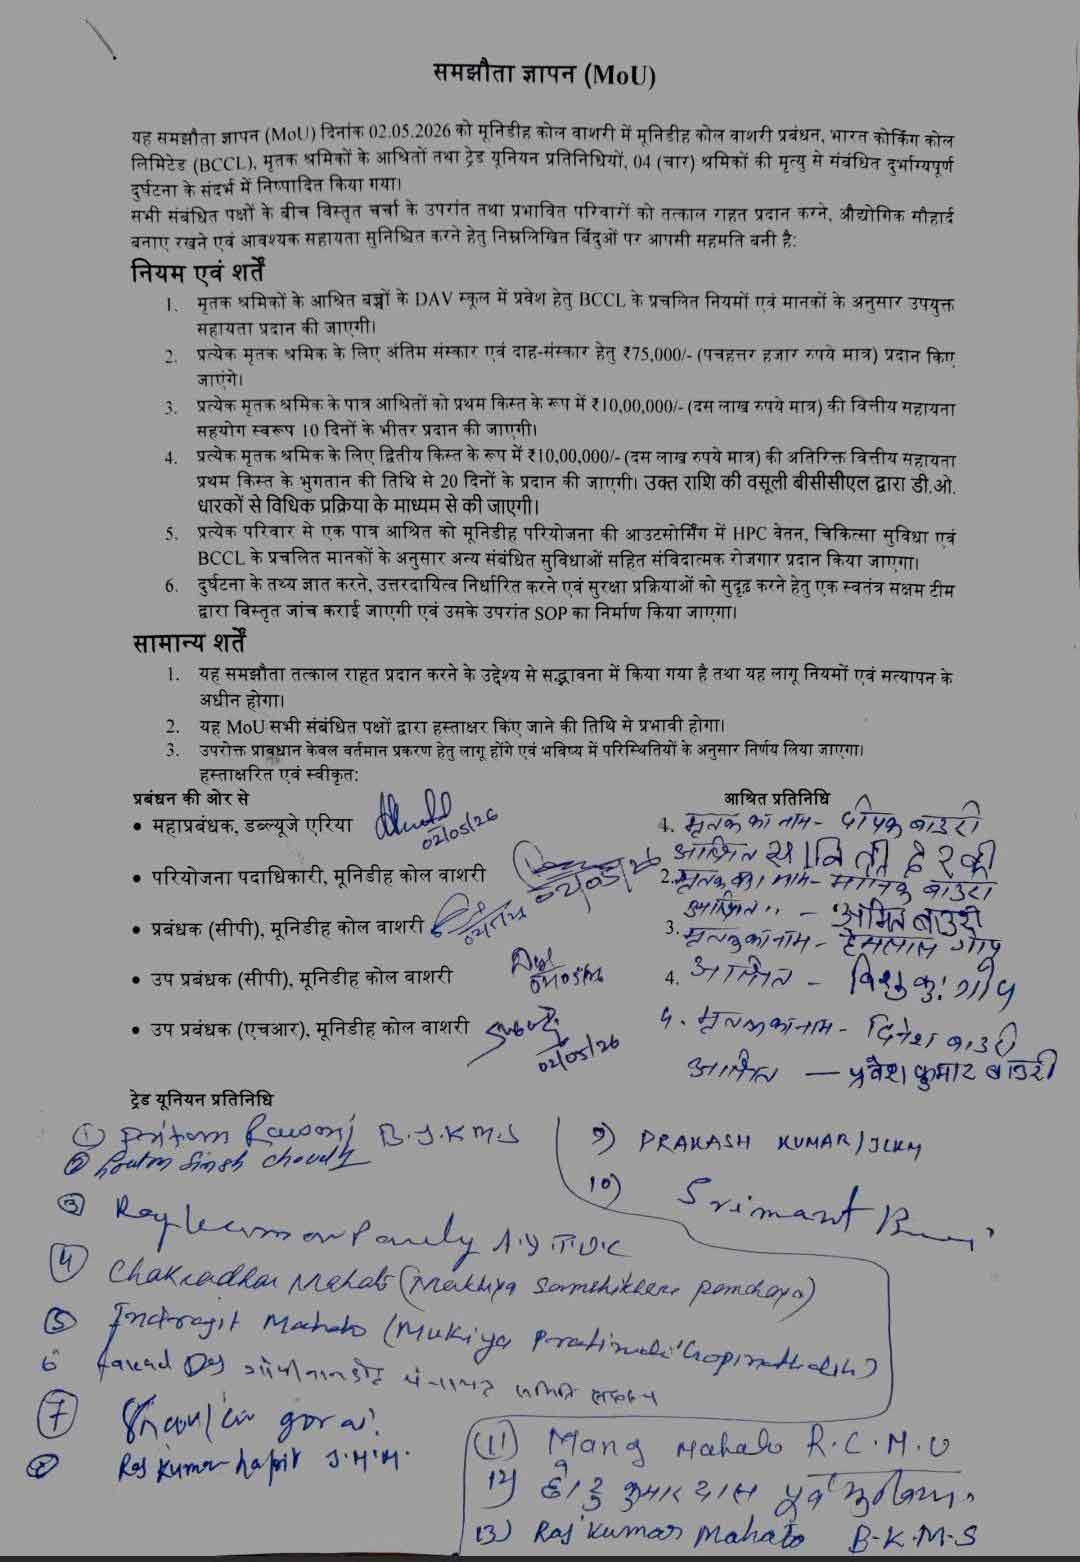 समझौता ज्ञापन (MoU)
यह समझौता ज्ञापन (MoU) दिनांक 02.05.2026 को मूनिडीह कोल वाशरी में मूनिडीह कोल वाशरी प्रबंधन, भारत कोकिंग कोल
लिमिटेड (BCCL), मृतक श्रमिकों के आश्रितों तथा ट्रेड यूनियन प्रतिनिधियों, 04 (चार) श्रमिकों की मृत्यु से संबंधित दुर्भाग्यपूर्ण
दुर्घटना के संदर्भ में निष्पादित किया गया।
सभी संबंधित पक्षों के बीच विस्तृत चर्चा के उपरांत तथा प्रभावित परिवारों को तत्काल राहत प्रदान करने, औद्योगिक सौहार्द
बनाए रखने एवं आवश्यक सहायता सुनिश्चित करने हेतु निम्नलिखित बिंदुओं पर आपसी सहमति बनी है:
नियम एवं शर्तें
1. मृतक श्रमिकों के आश्रित बच्चों के DAV स्कूल में प्रवेश हेतु BCCL के प्रचलित नियमों एवं मानकों के अनुसार उपयुक्त
सहायता प्रदान की जाएगी।
2. प्रत्येक मृतक श्रमिक के लिए अंतिम संस्कार एवं दाह-संस्कार हेतु ₹75,000/- (पचहत्तर हजार रुपये मात्र) प्रदान किए
जाएंगे।
3. प्रत्येक मृतक श्रमिक के पात्र आश्रितों को प्रथम किस्त के रूप में ₹10,00,000/- (दस लाख रुपये मात्र) की वित्तीय सहायता
सहयोग स्वरूप 10 दिनों के भीतर प्रदान की जाएगी।
4. प्रत्येक मृतक श्रमिक के लिए द्वितीय किस्त के रूप में ₹10,00,000/- (दस लाख रुपये मात्र) की अतिरिक्त वित्तीय सहायता
प्रथम किस्त के भुगतान की तिथि से 20 दिनों के प्रदान की जाएगी। उक्त राशि की वसूली बीसीसीएल द्वारा डी.ओ.
धारकों से विधिक प्रक्रिया के माध्यम से की जाएगी।
5. प्रत्येक परिवार से एक पात्र आश्रित को मूनिडीह परियोजना की आउटसोर्सिंग में HPC वेतन, चिकित्सा सुविधा एवं
BCCL के प्रचलित मानकों के अनुसार अन्य संबंधित सुविधाओं सहित संविदात्मक रोजगार प्रदान किया जाएगा।
6. दुर्घटना के तथ्य ज्ञात करने, उत्तरदायित्व निर्धारित करने एवं सुरक्षा प्रक्रियाओं को सुदृढ़ करने हेतु एक स्वतंत्र सक्षम टीम
द्वारा विस्तृत जांच कराई जाएगी एवं उसके उपरांत SOP का निर्माण किया जाएगा।
सामान्य शर्तें
1. यह समझौता तत्काल राहत प्रदान करने के उद्देश्य से सद्भावना में किया गया है तथा यह लागू नियमों एवं सत्यापन के
अधीन होगा।
2. यह MoU सभी संबंधित पक्षों द्वारा हस्ताक्षर किए जाने की तिथि से प्रभावी होगा।
3. उपरोक्त प्रावधान केवल वर्तमान प्रकरण हेतु लागू होंगे एवं भविष्य में परिस्थितियों के अनुसार निर्णय लिया जाएगा।
हस्ताक्षरित एवं स्वीकृत:
प्रबंधन की ओर से
• महाप्रबंधक, डब्ल्यूजे एरिया 02/05/26
• परियोजना पदाधिकारी, मूनिडीह कोल वाशरी 02/05/26
• प्रबंधक (सीपी), मूनिडीह कोल वाशरी
• उप प्रबंधक (सीपी), मूनिडीह कोल वाशरी 02/05/26
• उप प्रबंधक (एचआर), मूनिडीह कोल वाशरी 02/05/26
आश्रित प्रतिनिधि
1. मृतक का नाम - दीपक बाउरी
आश्रित सावित्री देवी
2. मृतक का नाम - मानिक बाउरी
आश्रित - अमित बाउरी
3. मृतक का नाम - हेमलाल गोप
4. आश्रित - विशु कु. गोप
4. मृतक का नाम - दिनेश बाउरी
आश्रित — प्रवेश कुमार बाउरी
ट्रेड यूनियन प्रतिनिधि
① B.J.KM.S
② Singh
③
④ Chakradhar Mahato (Mukhiya
⑤ Indrajit Mahato (Mukiya
6 Das
⑦ gorai
⑧ Raj Kumar J.M.M.
9) PRAKASH KUMAR/JLKM
10) Srimant
(11) Mahato R.C.M.U
12) कुमार दास पूर्व
13) Raj Kumar Mahato B.K.M.S